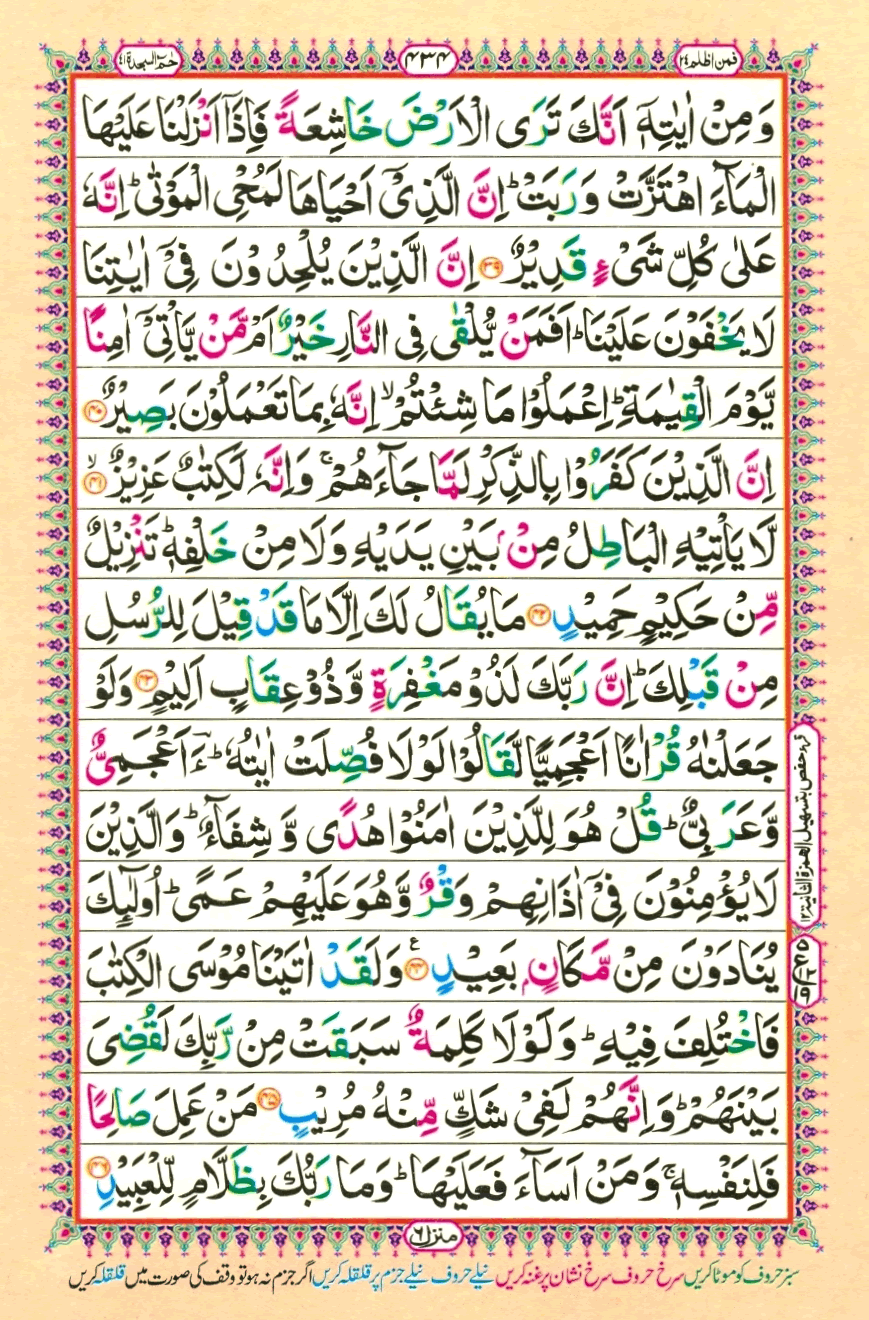 فمن اظلم ٢٤ ٤٣٤ حٰمٓ السجدة ٤١
وَ مِنْ اٰیٰتِهٖۤ اَنَّكَ تَرَی الْاَرْضَ خَاشِعَةً فَاِذَاۤ اَنْزَلْنَا عَلَیْهَا
الْمَآءَ اهْتَزَّتْ وَ رَبَتْ ؕ اِنَّ الَّذِیْۤ اَحْیَاهَا لَمُحْیِ الْمَوْتٰی ؕ اِنَّهٗ
عَلٰی كُلِّ شَیْءٍ قَدِیْرٌ ﴿۳۹﴾ اِنَّ الَّذِیْنَ یُلْحِدُوْنَ فِیْۤ اٰیٰتِنَا
لَا یَخْفَوْنَ عَلَیْنَا ؕ اَفَمَنْ یُّلْقٰی فِی النَّارِ خَیْرٌ اَمْ مَّنْ یَّاْتِیْۤ اٰمِنًا
یَّوْمَ الْقِیٰمَةِ ؕ اِعْمَلُوْا مَا شِئْتُمْ ۙ اِنَّهٗ بِمَا تَعْمَلُوْنَ بَصِیْرٌ ﴿۴۰﴾
اِنَّ الَّذِیْنَ كَفَرُوْا بِالذِّكْرِ لَمَّا جَآءَهُمْ ۚ وَ اِنَّهٗ لَكِتٰبٌ عَزِیْزٌ ﴿ۙ۴۱﴾
لَّا یَاْتِیْهِ الْبَاطِلُ مِنْۢ بَیْنِ یَدَیْهِ وَ لَا مِنْ خَلْفِهٖ ؕ تَنْزِیْلٌ
مِّنْ حَكِیْمٍ حَمِیْدٍ ﴿۴۲﴾ مَا یُقَالُ لَكَ اِلَّا مَا قَدْ قِیْلَ لِلرُّسُلِ
مِنْ قَبْلِكَ ؕ اِنَّ رَبَّكَ لَذُوْ مَغْفِرَةٍ وَّ ذُوْ عِقَابٍ اَلِیْمٍ ﴿۴۳﴾ وَ لَوْ
جَعَلْنٰهُ قُرْاٰنًا اَعْجَمِیًّا لَّقَالُوْا لَوْ لَا فُصِّلَتْ اٰیٰتُهٗ ؕ ءَاَعْجَمِیٌّ
وَّ عَرَبِیٌّ ؕ قُلْ هُوَ لِلَّذِیْنَ اٰمَنُوْا هُدًی وَّ شِفَآءٌ ؕ وَ الَّذِیْنَ
لَا یُؤْمِنُوْنَ فِیْۤ اٰذَانِهِمْ وَقْرٌ وَّ هُوَ عَلَیْهِمْ عَمًی ؕ اُولٰٓىِٕكَ
یُنَادَوْنَ مِنْ مَّكَانٍۭ بَعِیْدٍ ﴿۴۴﴾ ع وَ لَقَدْ اٰتَیْنَا مُوْسَی الْكِتٰبَ
فَاخْتُلِفَ فِیْهِ ؕ وَ لَوْ لَا كَلِمَةٌ سَبَقَتْ مِنْ رَّبِّكَ لَقُضِیَ
بَیْنَهُمْ ؕ وَ اِنَّهُمْ لَفِیْ شَكٍّ مِّنْهُ مُرِیْبٍ ﴿۴۵﴾ مَنْ عَمِلَ صَالِحًا
فَلِنَفْسِهٖ ۚ وَ مَنْ اَسَآءَ فَعَلَیْهَا ؕ وَ مَا رَبُّكَ بِظَلَّامٍ لِّلْعَبِیْدِ ﴿۴۶﴾
قرء حفص بتسهيل الهمزة الثانية ١٢
منزل ٦
سبز حروف کو موٹا کریں سرخ حروف سرخ نشان پر غنہ کریں نیلے حروف نیلے جزم پر قلقلہ کریں اگر جزم نہ ہو تو وقف کی صورت میں قلقلہ کریں